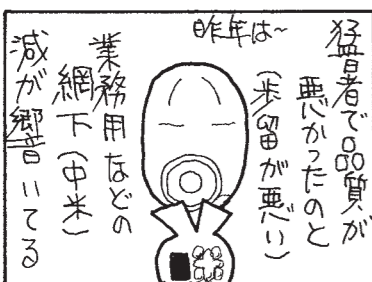 昨年は～
猛暑で品質が
悪かったのと
(歩留が悪い)
業務用などの
網下(中米)
減が響いてる